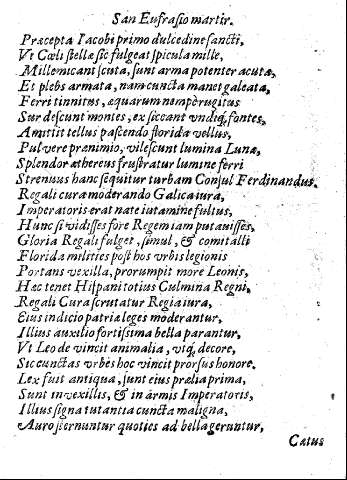 San Eufrasio martir.
Præcepta Iacobi primo dulcedine sancti,
Vt Cœli stellæ sic fulgeat spicula mille,
Millemicant scuta, sunt arma potenter acuta,
Et plebs armata, nam cuncta manet galeata,
Ferri tinnitus, æquarum nempè rugitus
Surdescunt montes, exsiccant vndiq; fontes,
Amittit tellus pascendo florida vellus,
Pulvere prænimio, vilescunt lumina Lunæ,
Splendor æthereus frustratur lumine ferri
Strenuus hanc sequitur turbam Consul Ferdinandus.
Regali cura moderando Galica iura,
Imperatoris erat nate iutamine fultus,
Hunc si vidisses fore Regem iam putavisses,
Gloria Regali fulget, simul, & comitalli
Florida melities post hos vrbis legionis
Portans vexilla, prorumpit more Leonis,
Hac tenet Hispani totius Culmina Regni,
Regali Cura scrutatur Regia iura,
Eius indicio patriæ leges moderantur,
Illius auxilio fortissima bella parantur,
Vt Leo devincit animalia, viq; decore,
Sic cunctas vrbes hoc vincit prorsus honore.
Lex fuit antiqua, sunt eius prælia prima,
Sunt in vexillis, & in àrmis Imperatoris,
Illius signa tutantia cuncta maligna,
Auro sternuntur quoties ad bella geruntur,
Cætus